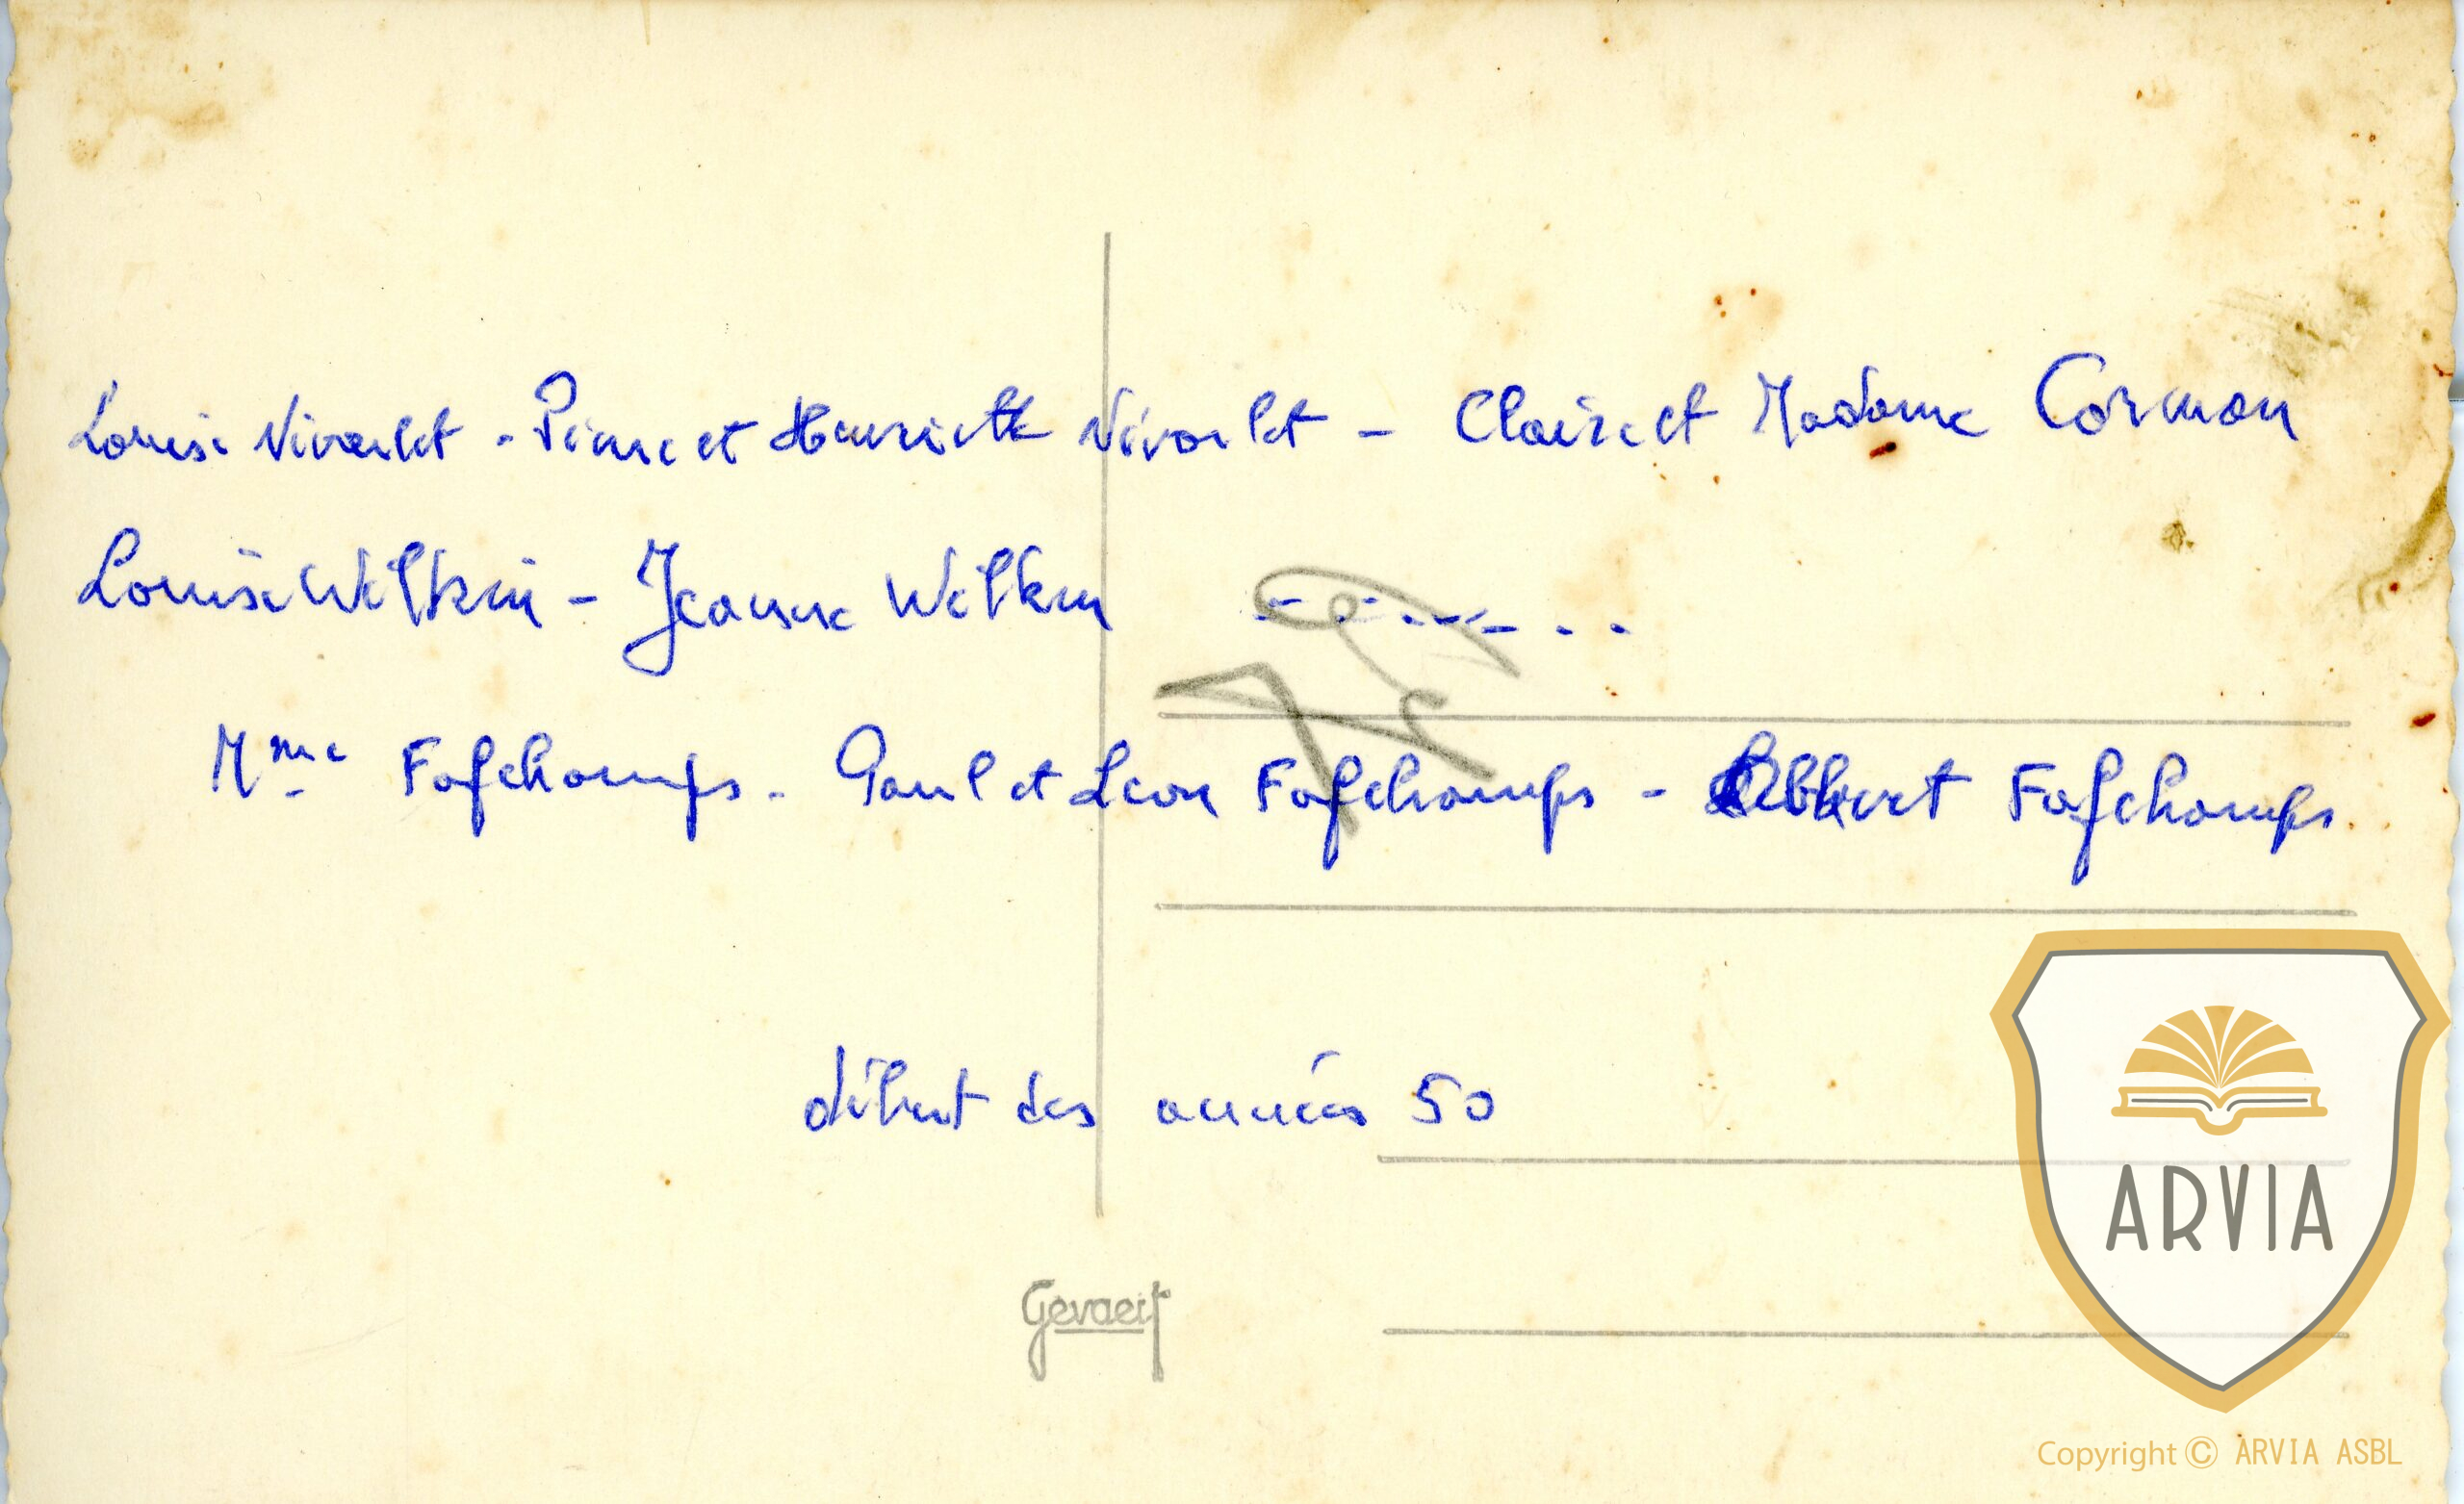 Louise Nivarlet - Pierre et Henriette Nivarlet - Claire et Madame Cormon
Louise Wilkin - Jeanne Wilkin - - . - - . .
Mme Fafchamps - Paul et Léon Fafchamps - Albert Fafchamps.
début des années 50
Gevaert
ARVIA
Copyright © ARVIA ASBL